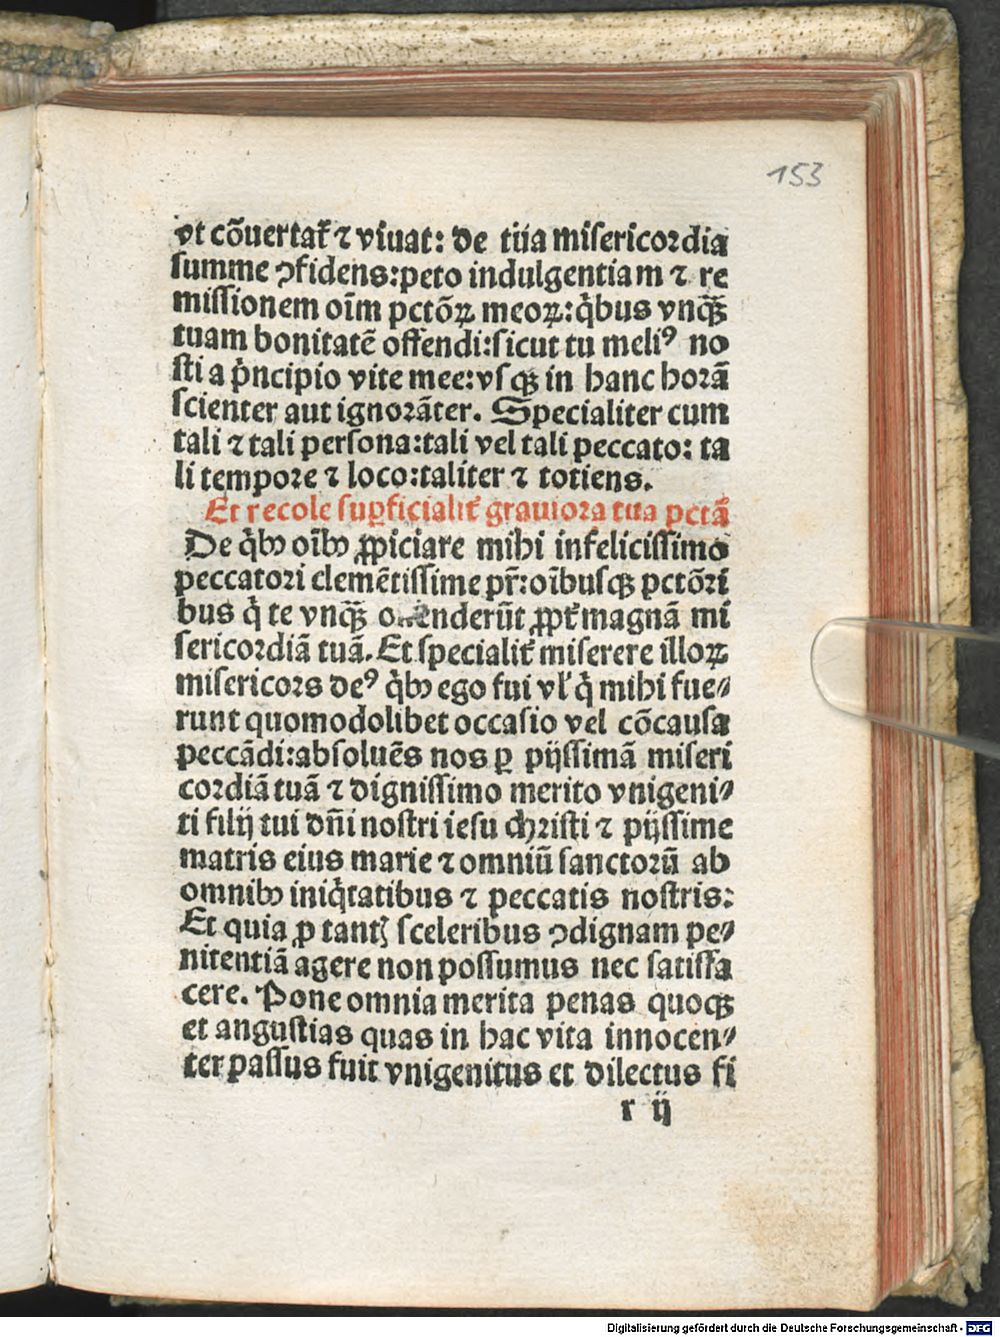 153
vt cōuertat᷑ ⁊ viuat: de tua misericordia
summe ꝯfidens: peto indulgentiam ⁊ re
missionem oīm pctōꝝ meoꝝ: qͥbus vnqꝫ̄
tuam bonitatē offendi: sicut tu meliꝰ no
sti a pͥncipio vite mee: vsqꝫ in hanc horā
scienter aut ignorāter. Specialiter cum
tali ⁊ tali persona: tali vel tali peccato: ta
li tempore ⁊ loco: taliter ⁊ totiens.
Et recole suꝑficialit᷑ grauiora tua pctā
De qͥbꝰ oībꝰ ꝓpiciare mihi infelicissimo
peccatori clemētissime pr̄: oībusqꝫ pctōri
bus qͥ te vnqꝫ̄ offenderūt ꝓpt᷑ magnā mi
sericordiā tuā. Et specialit᷑ miserere illoꝝ
misericors deꝰ qͥbꝰ ego fui vl̓ qͥ mihi fue⸗
runt quomodolibet occasio vel cōcausa
peccādi: absoluēs nos ꝑ pijssimā miseri
cordiā tuā ⁊ dignissimo merito vnigeni⸗
ti filij tui dn̄i nostri iesu christi ⁊ pijssime
matris eius marie ⁊ omniū sanctorū ab
omnibꝰ iniqͥtatibus ⁊ peccatis nostris:
Et quia ꝓ tantꝭ sceleribus ꝯdignam pe⸗
nitentiā agere non possumus nec satisfa
cere. Pone omnia merita penas quoqꝫ
et angustias quas in hac vita innocen⸗
ter passus fuit vnigenitus et dilectus fi
r ij
Digitalisierung gefördert durch die Deutsche Forschungsgemeinschaft - DFG